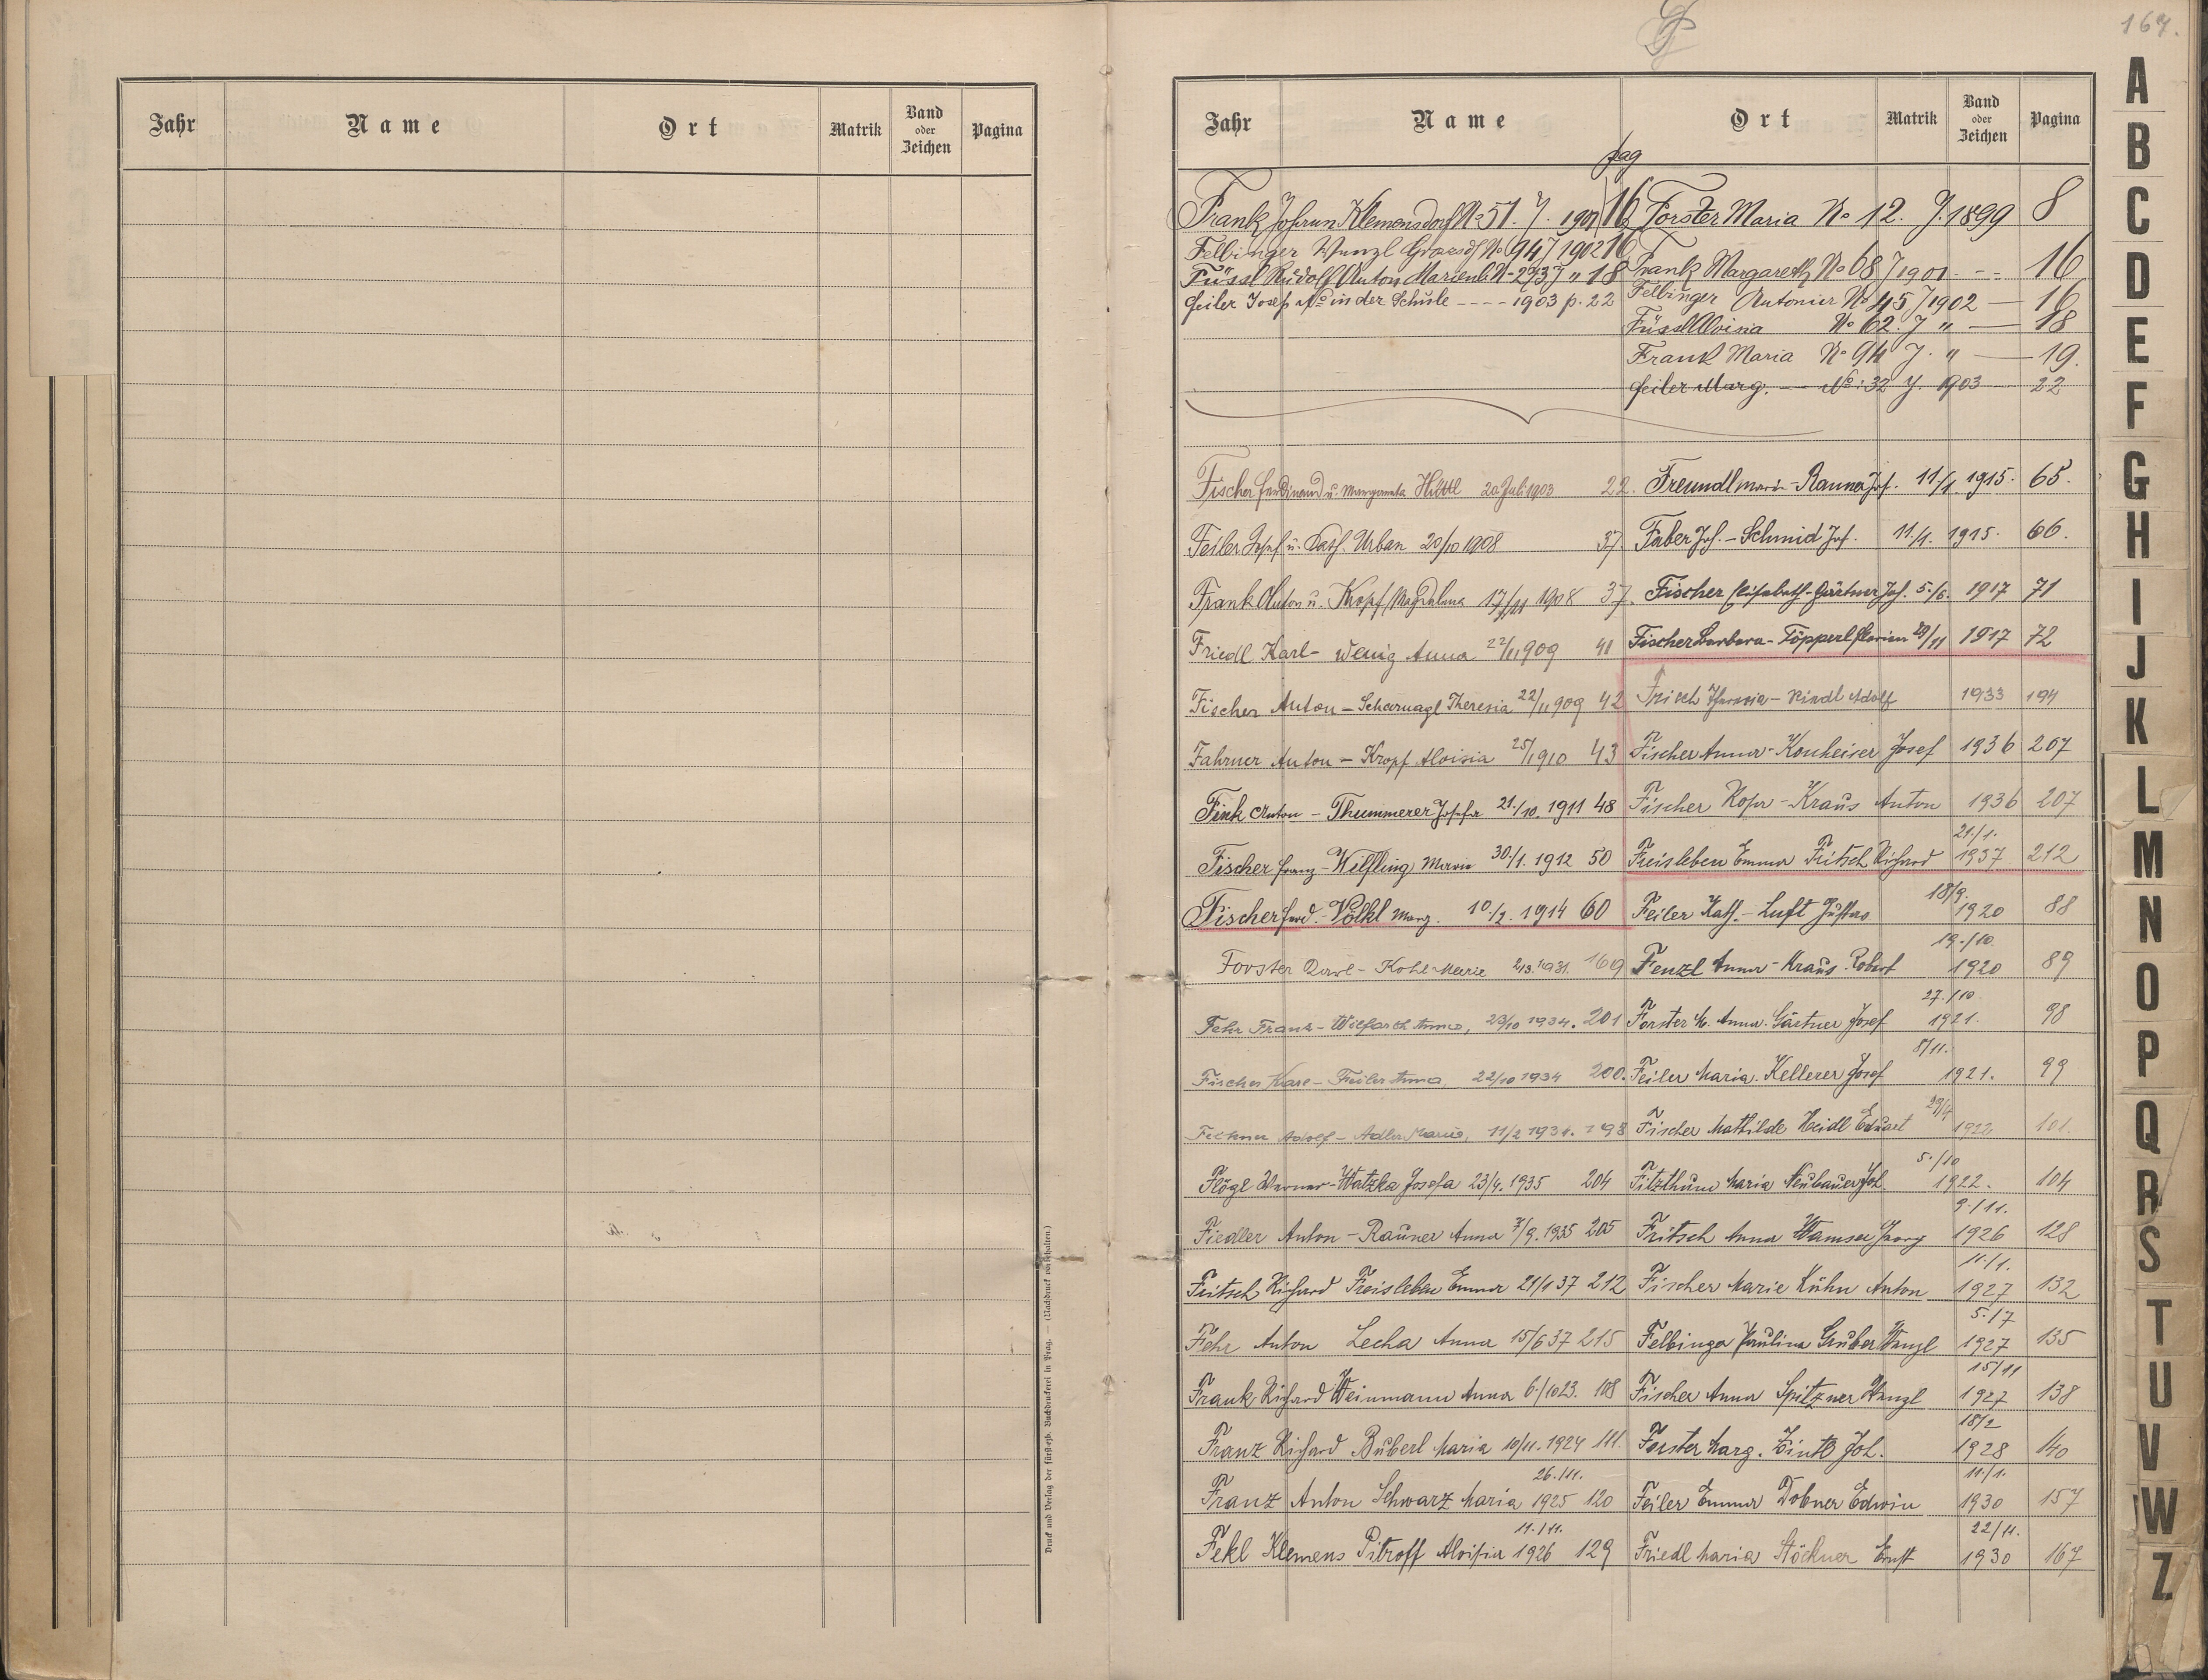 167.
Jahr Name Ort Matrik Band oder Zeichen Pagina
Druck und Verlag der fürsterzb. Buchdruckerei in Prag. — (Nachdruck vorbehalten.)
F
Jahr Name Ort Matrik Band oder Zeichen Pagina
pag
Frank Johann Klemensdorf No 51. J. 1901 16
Felbinger Wenzl No 94 J 1902 16
Füssl Rudolf Anton Marienb. No 273 J " 18
Feiler Josef No in der Schule ---- 1903 p. 22
Forster Maria No 12. J. 1899 8
Frank Margareth No 68 J 1901 --- 16
Felbinger Antonier No 45 J 1902 — 16
Füssl Aloisia No 62. J " — 18
Frank Maria No 94 J. " — 19.
Feiler Marg. — No: 32 J. 1903 22
Fischer Ferdinand u. Margareta Hüttl 20 Juli 1903 22.
Feiler Josef u. Kath. Urban 20/10 1908 37
Frank Anton u. Kropf Magdalena 17/11 1908 37.
Friedl Karl - Wenig Anna 22/11 1909 41
Fischer Anton - Scharnagl Theresia 22/11 1909 42
Fahrner Anton - Kropf Aloisia 25/1 1910 43
Fink Anton - Thummerer Josefa 21./10. 1911 48
Fischer Franz - Wilfling Marie 30./1. 1912 50
Fischer Ferd. - Völkl Marg. 10./2. 1914 60
Forster Karl - Kohl Marie 2/3. 1931. 169
Fehr Franz - Wilfarth Anna, 23/10 1934. 201
Fischer Karl - Feiler Anna, 22/10 1934 200.
Adolf - Adler Marie, 11/2 1934. 198
Flögl Werner - Watzka Josefa 23/4. 1935 204
Fiedler Anton - Rauner Anna 7/9. 1935 205
Fritsch Richard Freisleben Emma 21/1 37 212
Fehr Anton Lecha Anna 15/6 37 215
Frank Richard Weinmann Anna 6./10 23. 108
Franz Richard Buberl Maria 10/11. 1924 111.
Franz Anton Schwarz Maria 26./11. 1925 120
Fekl Klemens Pitroff Aloisia 11./11. 1926 129
Freundl Marie - Rauner Jos. 11./1. 1915. 65.
Faber Jos. - Schmid Jos. 11./1. 1915. 66.
Fischer Elisabeth - Gärtner Joh. 5./6. 1917 71
Fischer Barbara - Töpperl Florian 29/11 1917 72
Frisch Theresia - Riedl Adolf 1933 194
Fischer Anna - Konheiser Josef 1936 207
Fischer Rosa - Kraus Anton 1936 207
Freisleben Emma Fritsch Richard 21./1. 1937 212
Feiler Kath. - Luft Gustav 18/9. 1920 88
Fenzl Anna - Kraus Robert 19./10. 1920 89
Forster M. Anna. Gärtner Josef 27./10. 1921. 98
Feiler Maria. Kellerer Josef 8/11. 1921. 99
Fischer Mathilde Heidl Eduart 29/4 1922 101.
Fitzthum Maria Neubauer Joh. 5./10 1922. 104
Fritsch Anna Wamser Georg 9./11. 1926 128
Fischer Marie Kühn Anton 11./1. 1927 132
Felbinger Paulina Gruber Wenzl 5./7 1927 135
Fischer Anna Spitzner Wenzl 15/11 1927 138
Forster Marg. Joh. 18/2 1928 140
Feiler Emma Dobner Edwin 11./1. 1930 157
Friedl Maria Stöckner Ernst 22/11. 1930 167
A
B
C
D
E
F
G
H
I
J
K
L
M
N
O
P
Q
R
S
T
U
V
W
Z